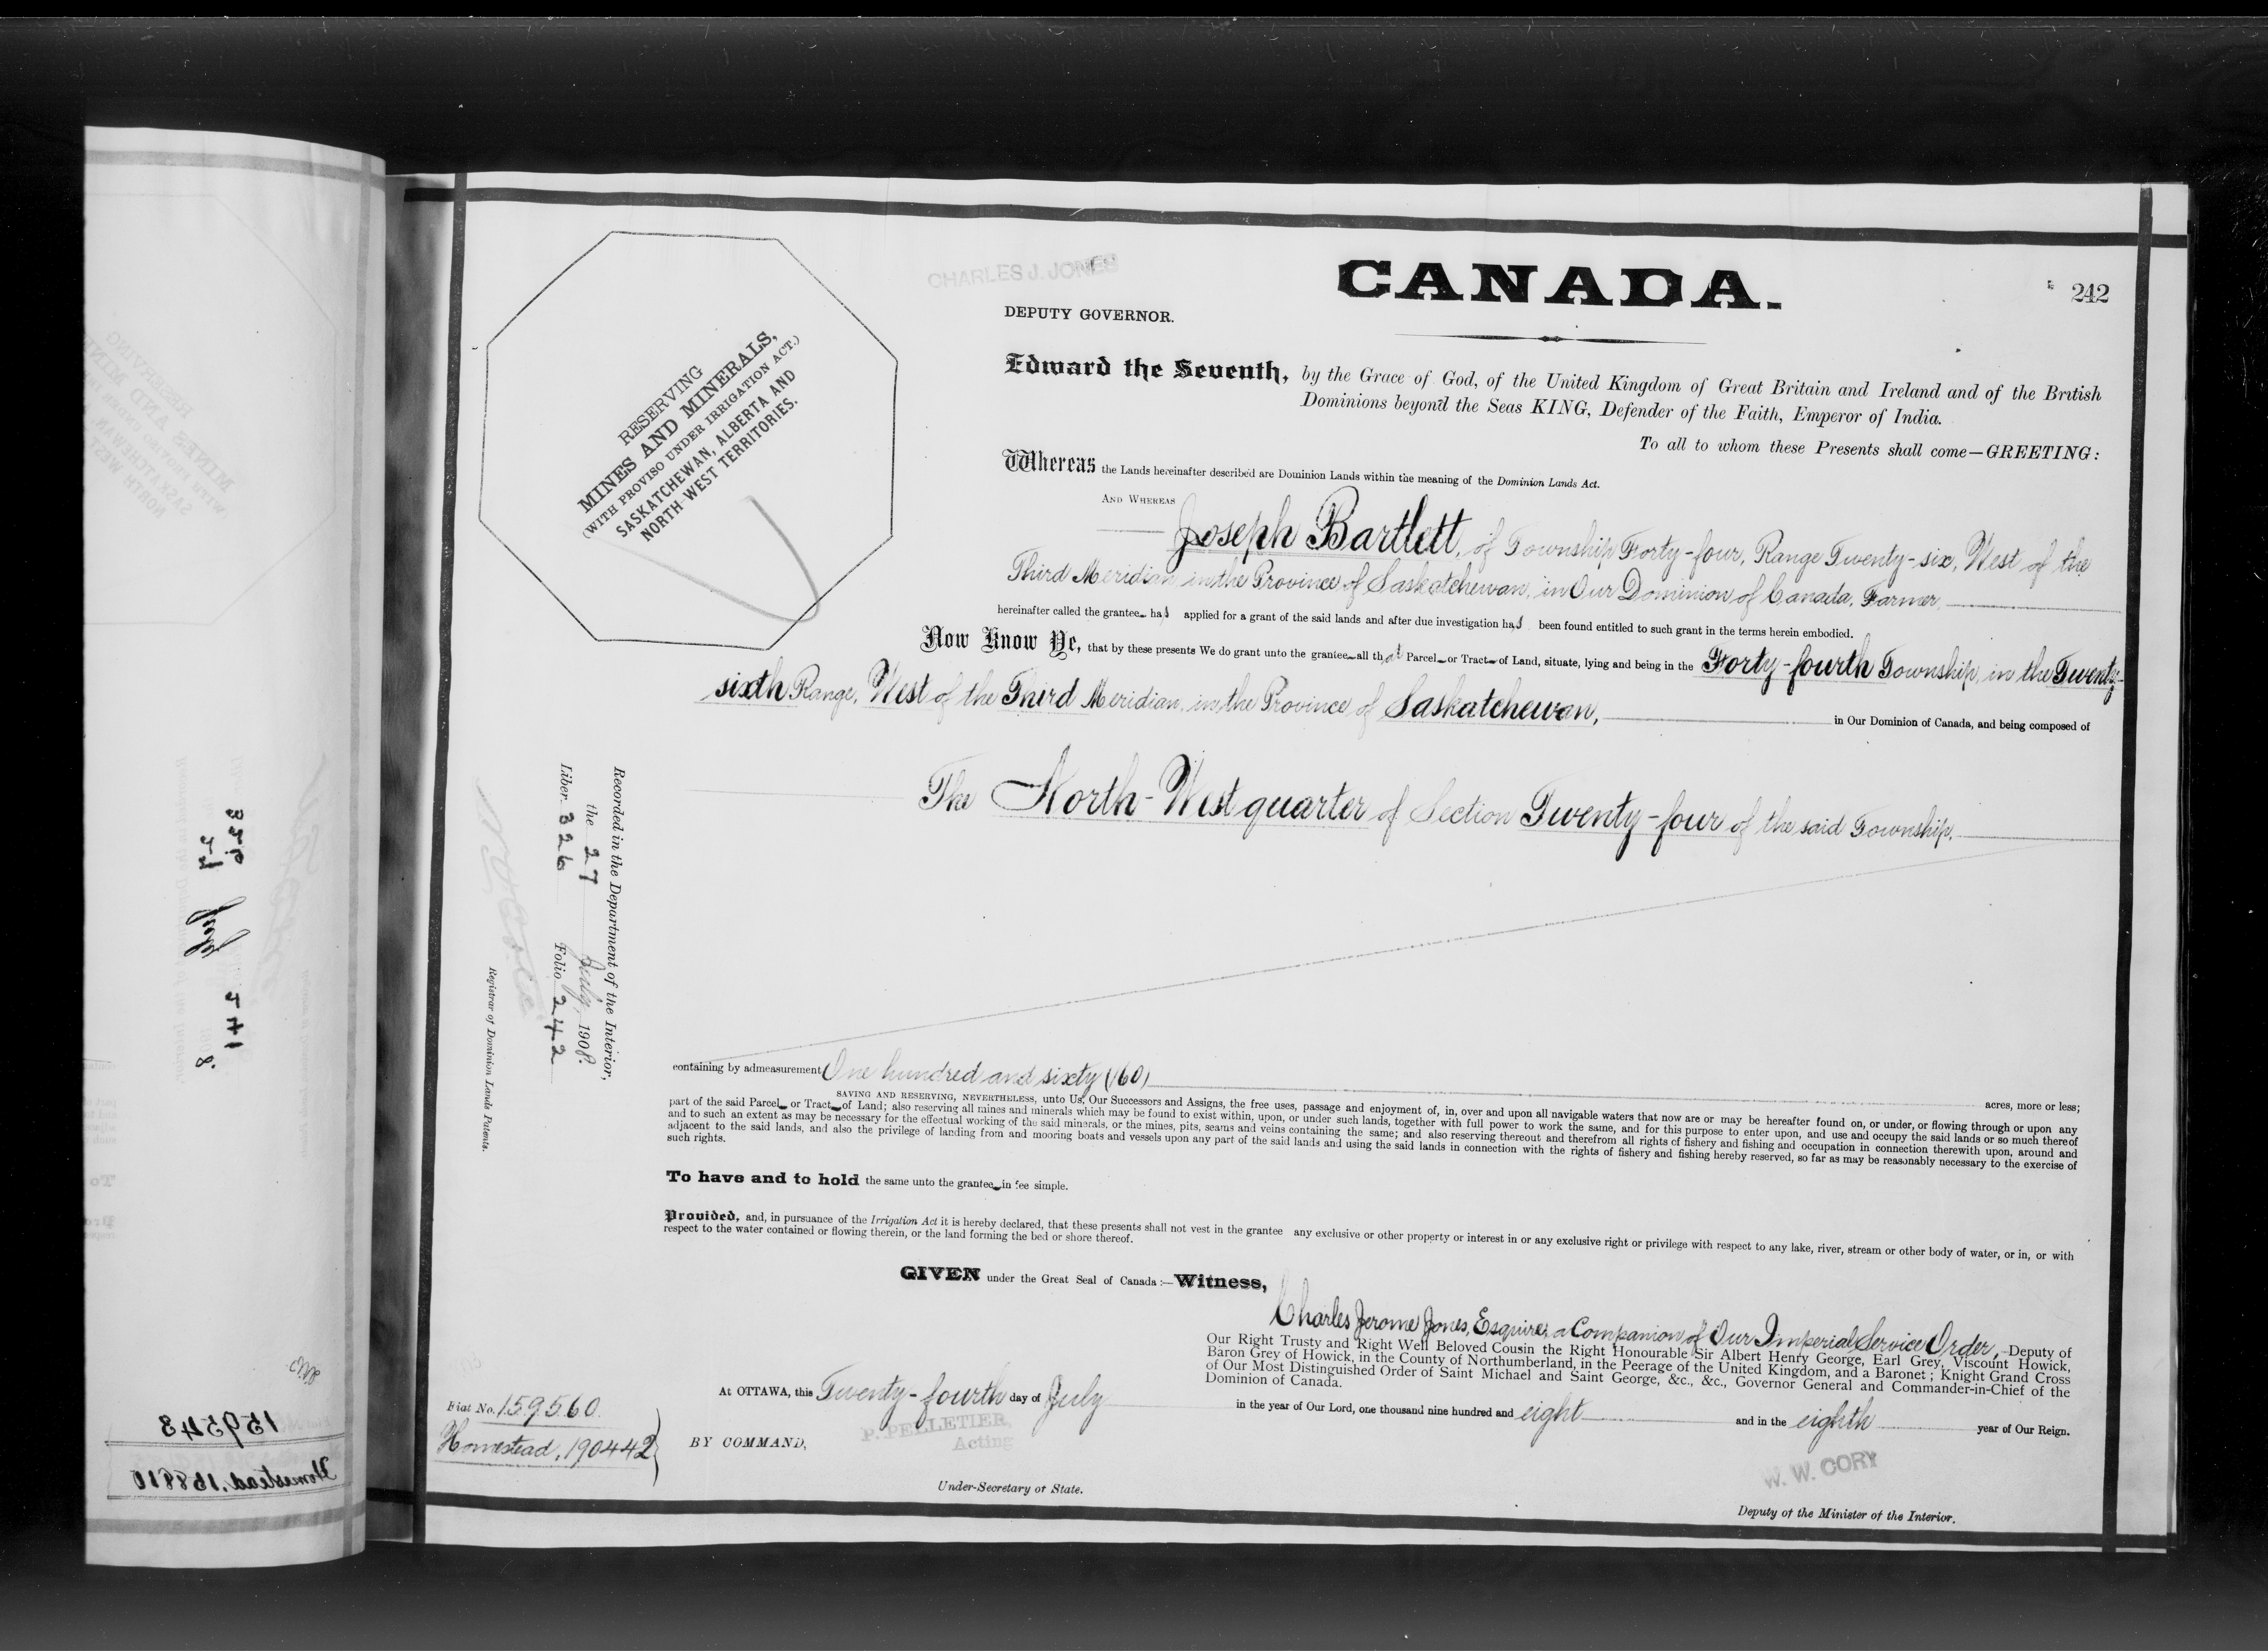 CHARLES J. JONES
CANADA.
242
DEPUTY GOVERNOR.
RESERVING
MINES AND MINERALS,
(WITH PROVISO UNDER IRRIGATION ACT.)
SASKATCHEWAN, ALBERTA AND
NORTH WEST TERRITORIES.
Edward the Seventh, by the Grace of God, of the United Kingdom of Great Britain and Ireland and of the British
Dominions beyond the Seas KING, Defender of the Faith, Emperor of India.
To all to whom these Presents shall come—GREETING:
Whereas the Lands hereinafter described are Dominion Lands within the meaning of the Dominion Lands Act.
AND WHEREAS
Joseph Bartlett, of Township Forty-four, Range Twenty-six, West of the
Third Meridian, in the Province of Saskatchewan, in Our Dominion of Canada, Farmer,
hereinafter called the grantee has applied for a grant of the said lands and after due investigation has been found entitled to such grant in the terms herein embodied.
Now Know Ye, that by these presents We do grant unto the grantee all that Parcel or Tract of Land, situate, lying and being in the Forty-fourth Township, in the Twenty-
sixth Range, West of the Third Meridian, in the Province of Saskatchewan, in Our Dominion of Canada, and being composed of
The North-West quarter of Section Twenty-four of the said Township.
Recorded in the Department of the Interior,
the 27 July, 1908.
Liber 326 Folio 242
Registrar of Dominion Lands Patents.
containing by admeasurement One hundred and sixty (160) acres, more or less;
SAVING AND RESERVING, NEVERTHELESS, unto Us, Our Successors and Assigns, the free uses, passage and enjoyment of, in, over and upon all navigable waters that now are or may be hereafter found on, or under, or flowing through or upon any
part of the said Parcel or Tract of Land; also reserving all mines and minerals which may be found to exist within, upon, or under such lands, together with full power to work the same, and for this purpose to enter upon, and use and occupy the said lands or so much thereof
and to such an extent as may be necessary for the effectual working of the said minerals, or the mines, pits, seams and veins containing the same; and also reserving thereout and therefrom all rights of fishery and fishing and occupation in connection therewith upon, around and
adjacent to the said lands, and also the privilege of landing from and mooring boats and vessels upon any part of the said lands and using the said lands in connection with the rights of fishery and fishing hereby reserved, so far as may be reasonably necessary to the exercise of
such rights.
To have and to hold the same unto the grantee in fee simple.
Provided, and, in pursuance of the Irrigation Act it is hereby declared, that these presents shall not vest in the grantee any exclusive or other property or interest in or any exclusive right or privilege with respect to any lake, river, stream or other body of water, or in, or with
respect to the water contained or flowing therein, or the land forming the bed or shore thereof.
GIVEN under the Great Seal of Canada:—Witness,
Charles Jerome Jones, Esquire, a Companion of Our Imperial Service Order, Deputy of
Our Right Trusty and Right Well Beloved Cousin the Right Honourable Sir Albert Henry George, Earl Grey, Viscount Howick,
Baron Grey of Howick, in the County of Northumberland, in the Peerage of the United Kingdom, and a Baronet; Knight Grand Cross
of Our Most Distinguished Order of Saint Michael and Saint George, &c., &c., Governor General and Commander-in-Chief of the
Dominion of Canada.
At OTTAWA, this Twenty-fourth day of July in the year of Our Lord, one thousand nine hundred and eight and in the eighth year of Our Reign.
Fiat No. 159560.
Homestead, 190442
BY COMMAND,
P. PELLETIER,
Acting
Under-Secretary of State.
W. W. CORY
Deputy of the Minister of the Interior.
159543
Homestead, 158810